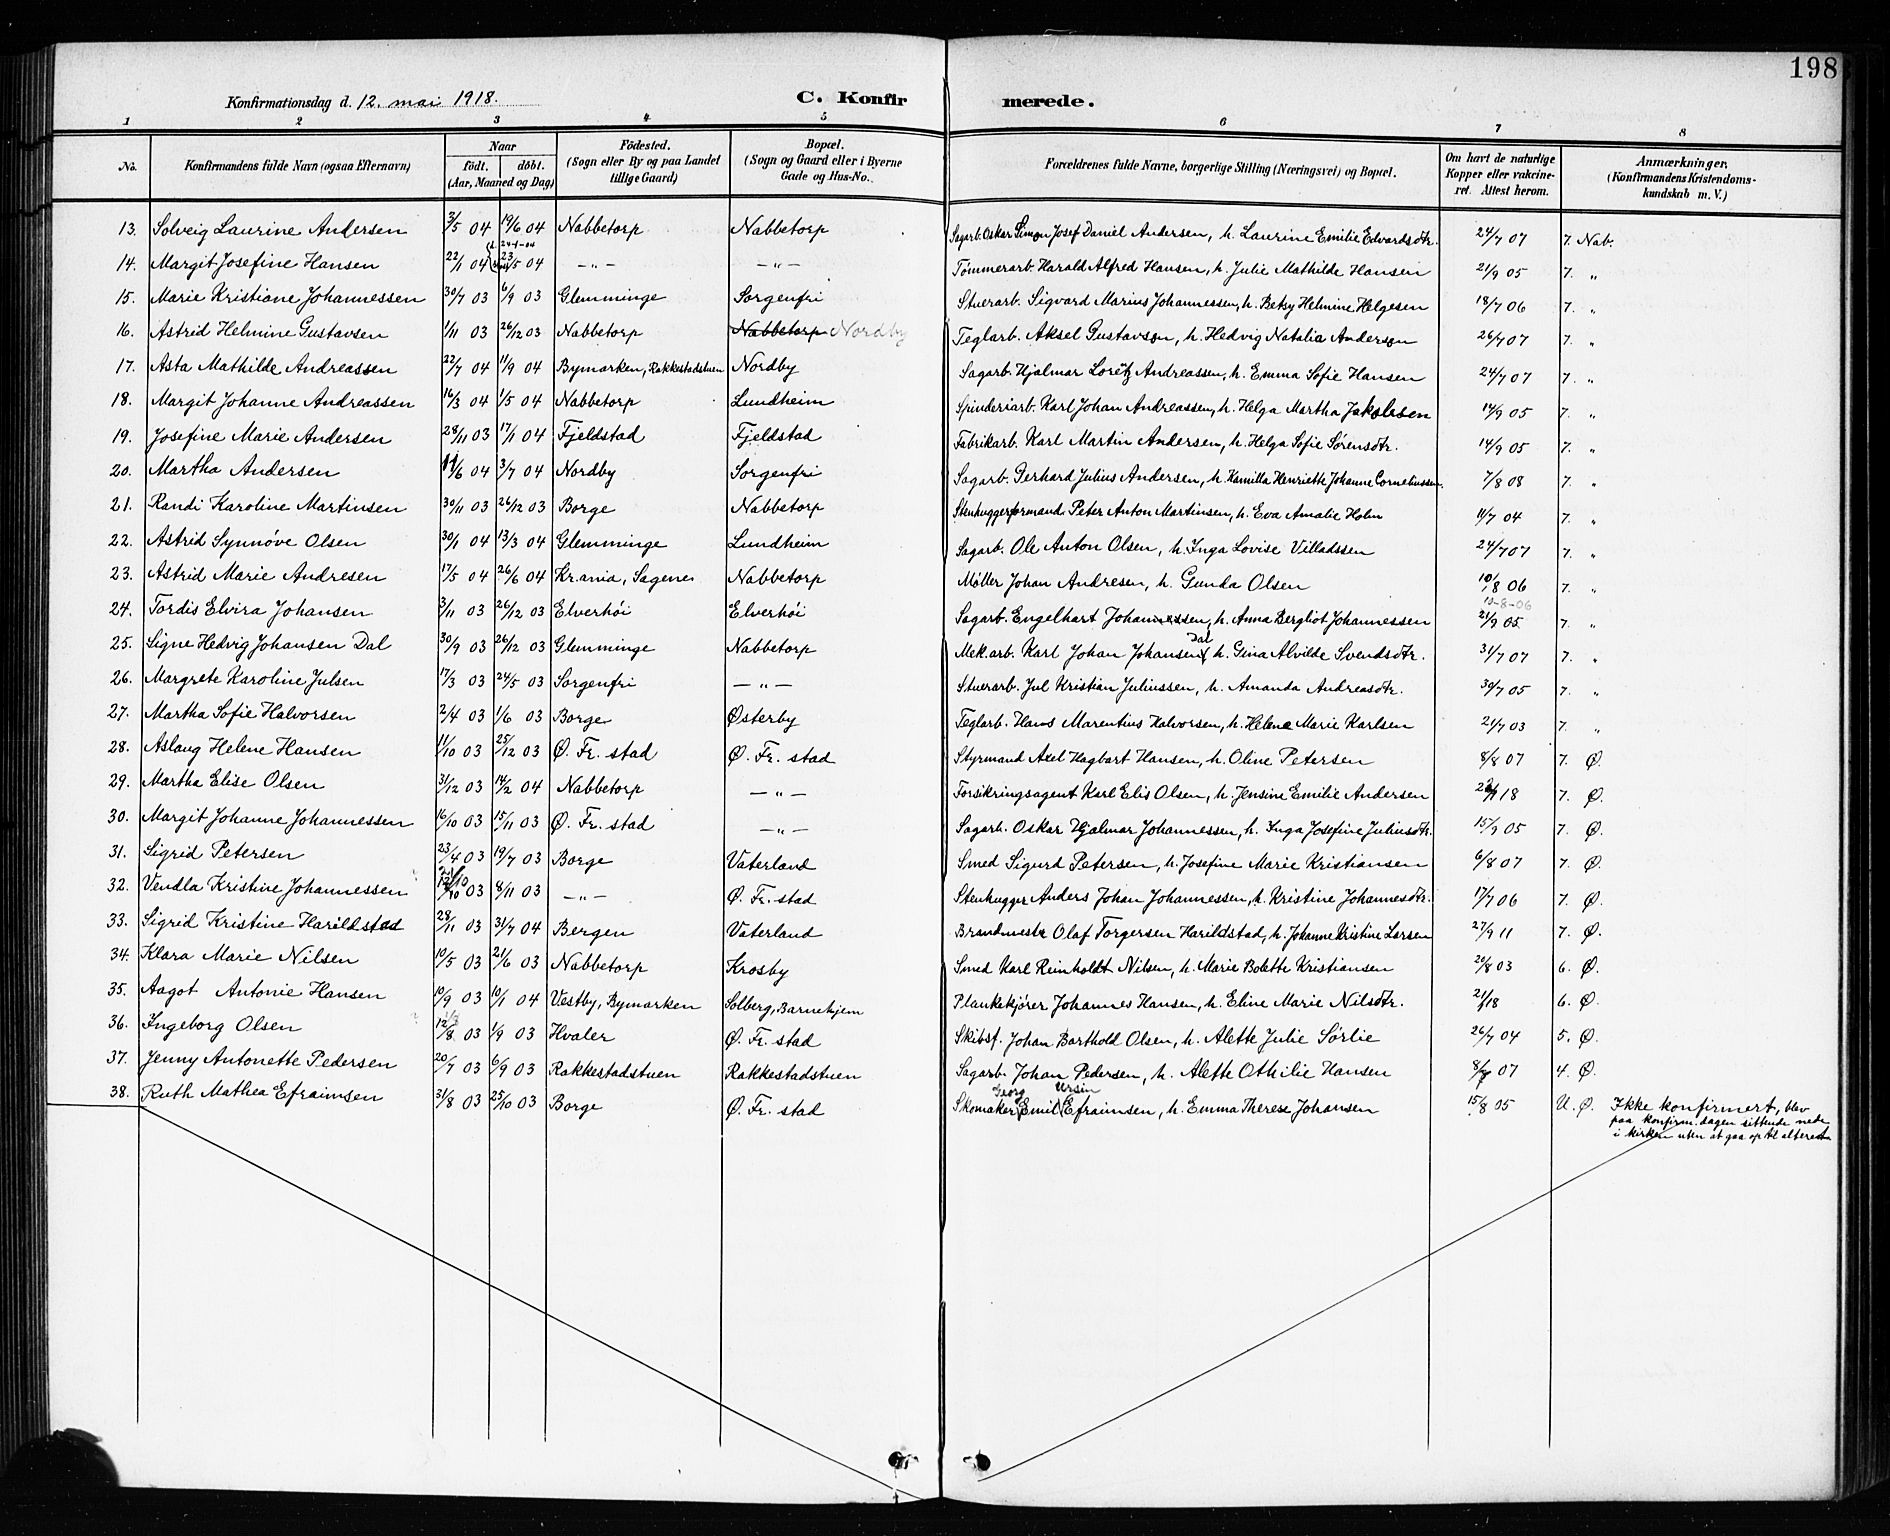 198
Konfirmationsdag d. 12. mai 1918. C. Konfirmerede.
1 2 3 4 5 6 7 8
No. | Konfirmandens fulde Navn (ogsaa Efternavn) | Naar født. døbt. (Aar, Maaned og Dag) | Födested. (Sogn eller By og paa Landet tillige Gaard) | Bopæl. (Sogn og Gaard eller i Byerne Gade og Hus-No.) | Forældrenes fulde Navne, borgerlige Stilling (Næringsvei) og Bopæl. | Om havt de naturlige Kopper eller vakcineret. Attest herom. | Anmærkninger. (Konfirmandens Kristendomskundskab m. V.)
13. Solveig Laurine Andersen 3/5 04 19/6 04 Nabbetorp Nabbetorp Sagarb. Oskar Simon Josef Daniel Andersen, h. Laurine Emilie Edvardsdtr. 24/7 07 7. Nab.
14. Margit Josefine Hansen 22/1 04 24-1-04 23/5 04 —„— —„— Tømmerarb. Harald Alfred Hansen, h. Julie Mathilde Hansen 21/9 05 7. „
15. Marie Kristiane Johannessen 30/7 03 6/9 03 Glemminge Sorgenfri Stuerarb. Sigvard Marius Johannessen, h. Betsy Helmine Helgesen 18/7 06 7. „
16. Astrid Helmine Gustavsen 1/11 03 26/12 03 Nabbetorp Nabbetorp Nordby Teglarb. Aksel Gustavson, h. Hedvig Natalia Anderson 26/7 07 7. „
17. Asta Mathilde Andreassen 22/7 04 11/9 04 Bymarken, Rakkestadstuen Nordby Sagarb. Hjalmar Loretz Andreassen, h. Emma Sofie Hansen 24/7 07 7. „
18. Margit Johanne Andreassen 16/3 04 1/5 04 Nabbetorp Lundheim Spinderiarb. Karl Johan Andreassen, h. Helga Martha Jakobsen 14/9 05 7. „
19. Josefine Marie Andersen 28/11 03 17/1 04 Fjeldstad Fjeldstad Fabrikarb. Karl Martin Andersen, h. Helga Sofie Sørensdtr. 14/9 05 7. „
20. Martha Andersen 11/6 04 3/7 04 Nordby Sorgenfri Sagarb. Gerhard Julius Andersen, h. Kamilla Henriette Johanne Corneliussen. 7/8 08 7. „
21. Randi Karoline Martinsen 30/11 03 26/12 03 Borge Nabbetorp Stenhuggerformand Peter Anton Martinsen, h. Eva Amalie Holm 11/7 04 7. „
22. Astrid Synnøve Olsen 30/1 04 13/3 04 Glemminge Lundheim Sagarb. Ole Anton Olsen, h. Inga Lovise Villadssen 24/7 07 7. „
23. Astrid Marie Andresen 17/5 04 26/6 04 Kr.ania, Sagenes Nabbetorp Møller Johan Andresen, h. Gunda Olsen 10/8 06 7. „
10-8-06
24. Tordis Elvira Johansen 3/11 03 26/12 03 Elverhöi Elverhöi Sagarb. Engelhart Johannessen, h. Anna Bergliot Johannessen 21/9 05 7. „
25. Signe Hedvig Johansen Dal 30/9 03 26/12 03 Glemminge Nabbetorp Mek.arb. Karl Johan Johansen Dal h. Gina Alvilde Svendsdtr. 31/7 07 7. „
26. Margrete Karoline Julsen 17/3 03 24/5 03 Sorgenfri —„— Stuerarb. Jul Kristian Juliussen, h. Amanda Andreasdtr. 30/7 05 7. „
27. Martha Sofie Halvorsen 2/4 03 1/6 03 Borge Østerby Teglarb. Hans Marentius Halvorsen, h. Helene Marie Karlsen 21/7 03 7. „
28. Aslaug Helene Hansen 11/10 03 25/12 03 Ø. Fr. stad Ø. Fr. stad Styrmand Axel Hagbart Hansen, h. Oline Petersen 8/8 07 7. Ø.
29. Martha Elise Olsen 31/12 03 14/2 04 Nabbetorp —„— Forsikringsagent Karl Elis Olsen, h. Jensine Emilie Andersen 18 7. Ø.
30. Margit Johanne Johannessen 16/10 03 15/11 03 Ø. Fr. stad —„— Sagarb. Oskar Hjalmar Johannessen, h. Inga Josefine Juliusdtr. 15/9 05 7. Ø.
31. Sigrid Petersen 23/4 03 19/7 03 Borge Vaterland Smed Sigurd Petersen, h. Josefine Marie Kristiansen 6/8 07 7. Ø.
32. Vendla Kristine Johannessen 03 8/11 03 —„— Ø. Fr. stad Stenhugger Anders Johan Johannessen, h. Kristine Johannesdtr. 17/7 06 7. Ø.
33. Sigrid Kristine Harildstad 28/11 03 31/7 04 Bergen Vaterland Brandmestr Olaf Torgersen Harildstad, h. Johanne Kristine Larsen 27/9 11 7. Ø.
34. Klara Marie Nilsen 10/5 03 21/6 03 Nabbetorp Krosby Smed Karl Reinholdt Nilsen, h. Marie Bolette Kristiansen 20/8 03 6. Ø.
35. Aagot Antonie Hansen 10/9 03 10/1 04 Vestby, Bymarken Solberg, Barnehjem Plankekjører Johannes Hansen, h. Eline Marie Nilsdtr. 21/1 18 6. Ø.
36. Ingeborg Olsen 12/8 03 1/9 03 Hvaler Ø. Fr. stad Skibsf. Johan Barthold Olsen, h. Alette Julie Sørlie 26/7 04 5. Ø.
37. Jenny Antonette Pedersen 20/7 03 6/9 03 Rakkestadstuen Rakkestadstuen Sagarb. Johan Pedersen, h. Alette Othilie Hansen 8/8 07 4. Ø.
38. Ruth Mathea Efraimsen 31/8 03 25/10 03 Borge Ø. Fr. stad Skomaker Georg Emil Ursin Efraimsen, h. Emma Therese Johansen 15/8 05 U. Ø. Ikke konfirmert, blev
paa konfirm.dagen sittende nede
i kirken uten at gaa op til alteret.